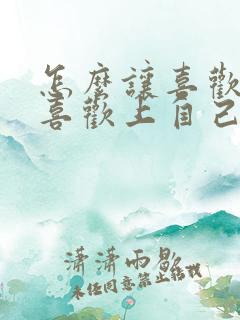 怎麼讓喜歡
喜歡上自己
瀟瀟雨歇
未经同意禁止转载